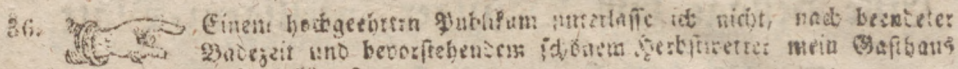 36. Einem hochgeehrten Publikum unterlasse ich nicht, nach beendeter
Badezeit und bevorstehendem schönem Herbstwetter mein Gasthaus